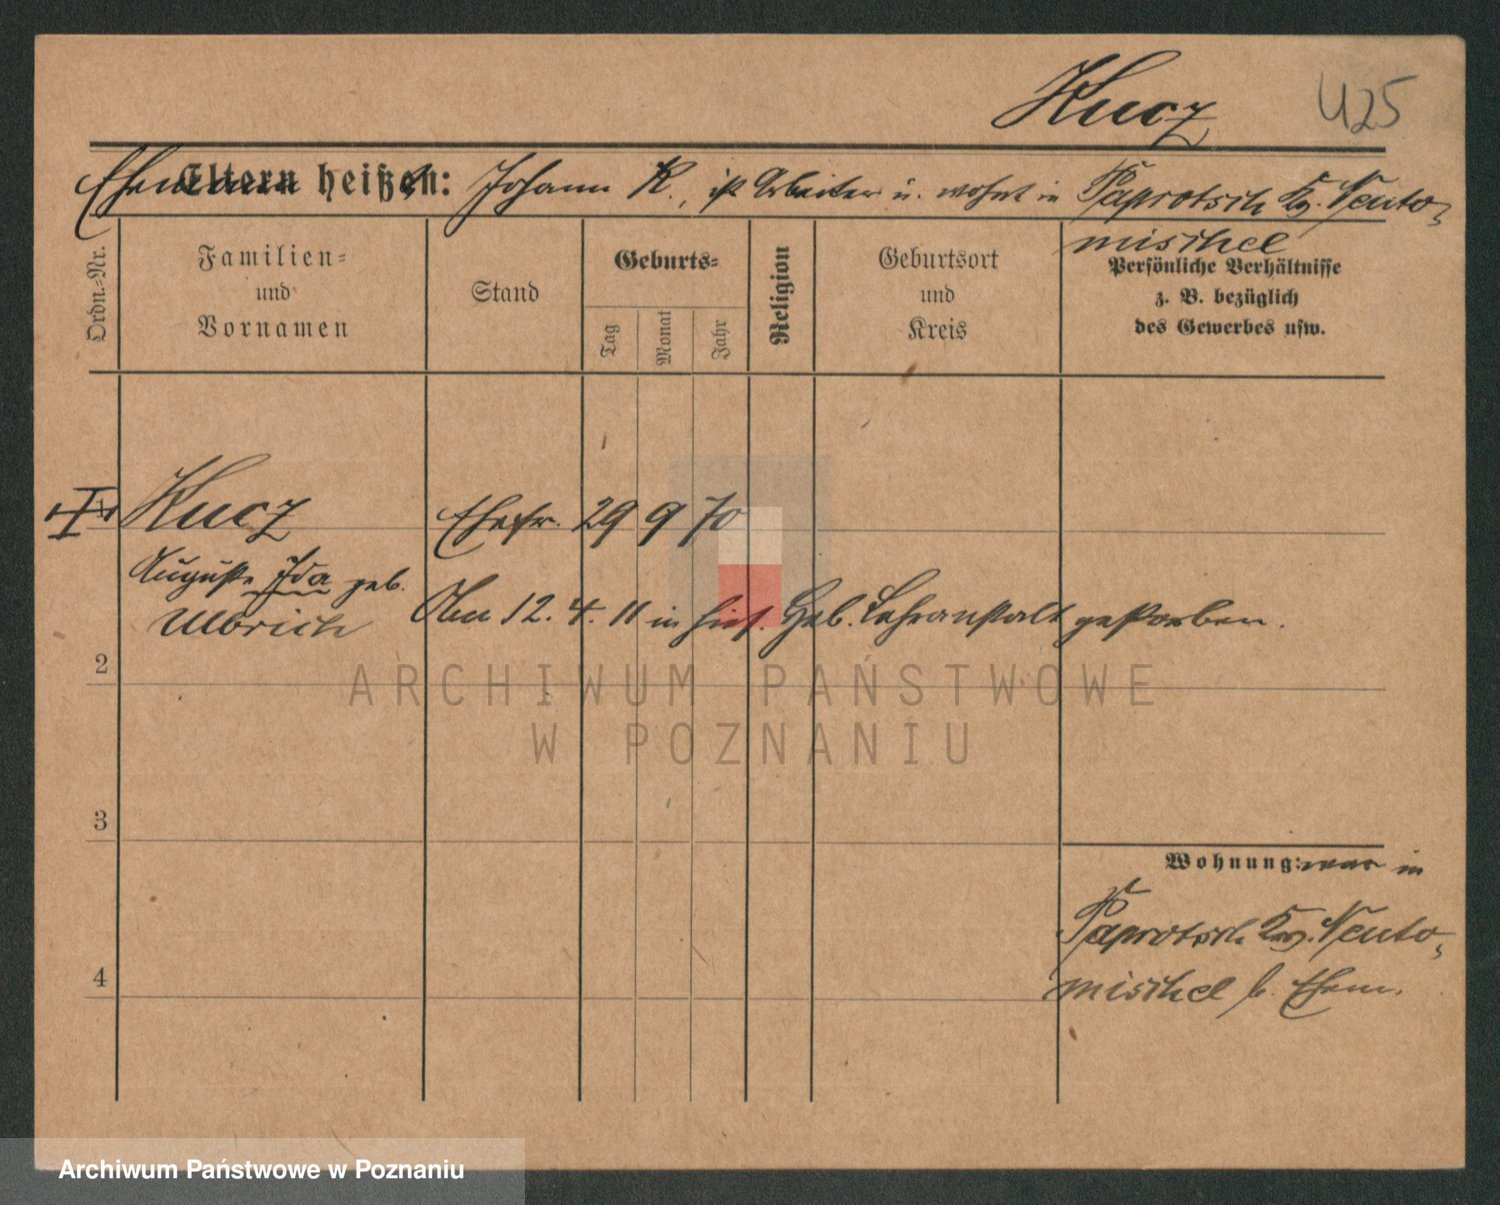 Kucz 425
Ehemann heißt: Johann K., ist Arbeiter u. wohnt in Paprotsch Krs. Neuto-
mischel
Ordn.-Nr.
Familien-
und
Vornamen
Stand
Geburts-
Tag
Monat
Jahr
Religion
Geburtsort
und
Kreis
Persönliche Verhältnisse
z. B. bezüglich
des Gewerbes usw.
1 Kucz Ehefr. 29 9 70
Auguste Ida geb.
Ulbrich
Am 12. 4. 11 in hies. Heb. Lehranstalt gestorben.
2
ARCHIWUM PAŃSTWOWE
W POZNANIU
3
Wohnung: war in
Paprotsch Krs. Neuto-
mischel b. Ehem.
4
Archiwum Państwowe w Poznaniu